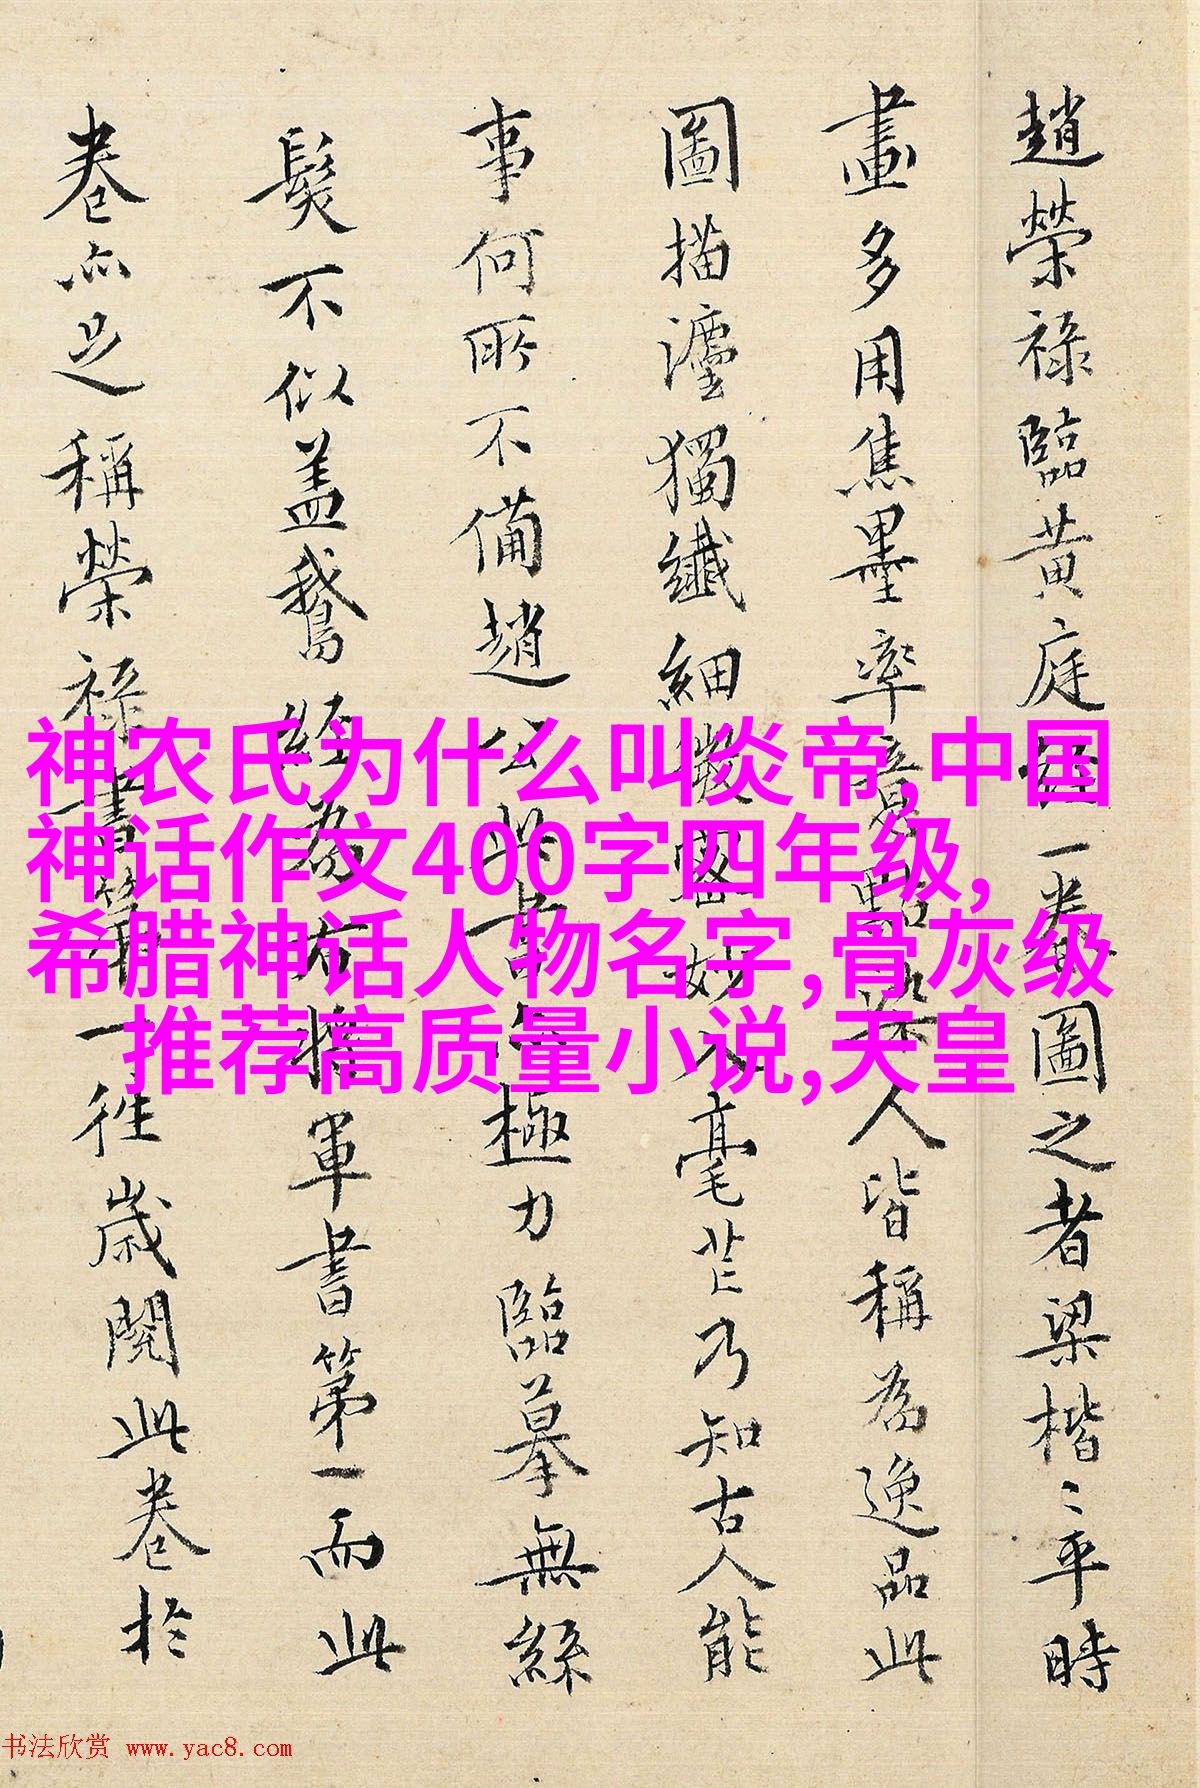 趙榮祿臨黃庭經一卷圖之者梁楷〻平時
畫多用焦墨率意點染人皆稱為逸品此
圖描瀍獨纖細微密妙入毫芒乃知古人能
事何所不備趙公此書亦極力臨摹無絲
髮不似盖鵞經為右將軍書第一而此
卷亦足稱榮祿書第一徃歲閱此卷於
神农氏为什么叫炎帝,中国
神话作文400字四年级,
希腊神话人物名字,骨灰级
推荐高质量小说,天皇
书法欣赏 www.yac8.com